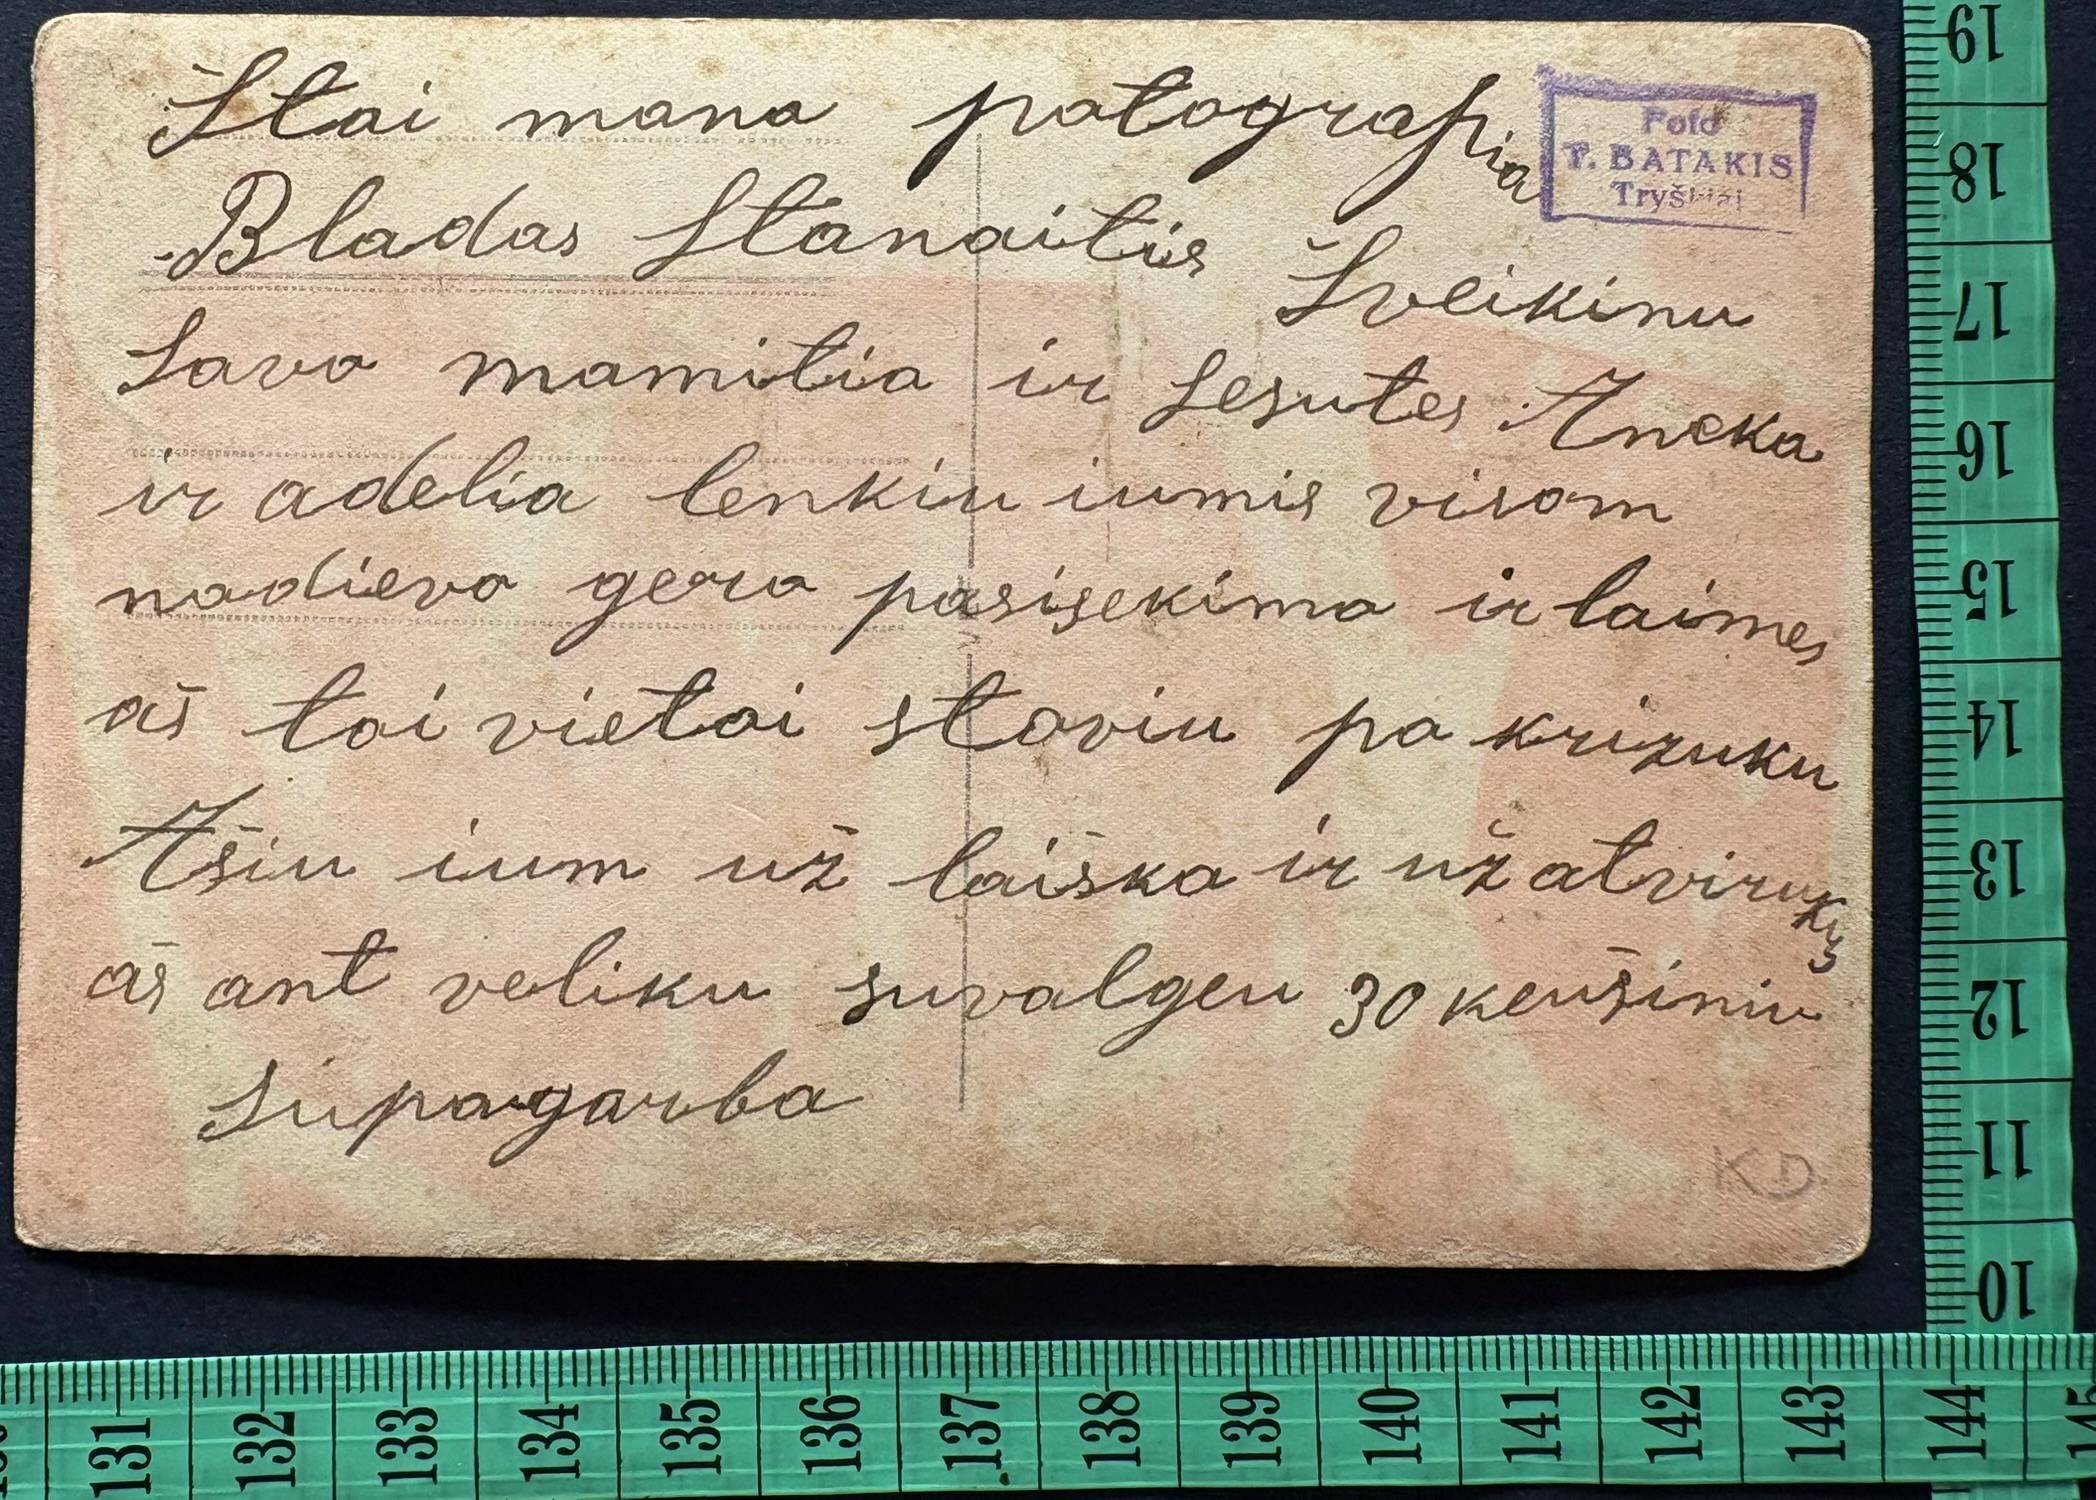 Štai mana patografia
Foto
P. BATAKIS
Tryškiai
Bladas Stanaitis Šveikinu
Sava mamitia ir sesutes Aneka
ir adelia lenkiu iumis visom
nadieva gera pasisekima ir laimes
aš tai vietai staviu pa krizuku
Ašiu ium už laiška ir už atvirukus
aš ant veliku suvalgeu 30 keušiniu
Supagarba
KD
19
18
17
16
15
14
13
12
11
10
131 132 133 134 135 136 137 138 139 140 141 142 143 144 145